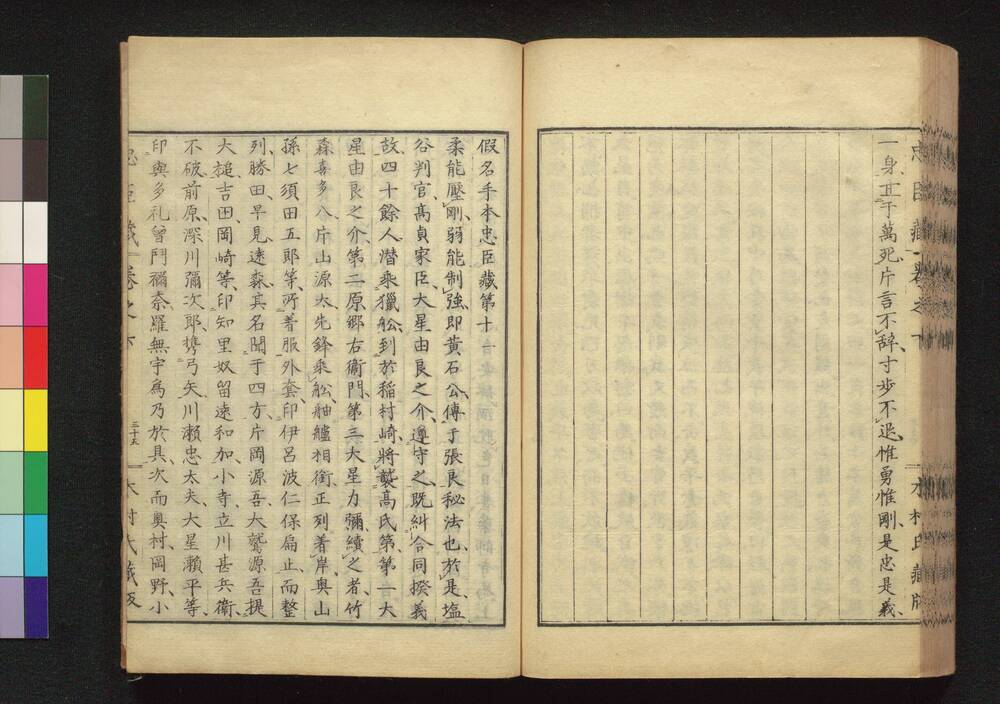 一身五于萬死片言不辭寸歩不退惟勇惟剛是忠是義
假名手本忠臣藏第十一
柔能壓剛弱能制強即黄石公傳于張良秘法也於是塩
谷判官髙貞家臣大星由良之介遵守之既糾合同揆義
故四十餘人潜乘獵舩到於稲村﨑將襲髙氏第第一大
星由良之介第二原郷右衛門第三大星力彌續之者竹
森喜多八片山源太先鋒乘舩舳艫相銜正列着岸奥山
孫七須田五郎等所著服外套印伊呂波仁保扁止而整
列勝田早見遠森其名聞于四方片岡源吾大鷲源吾提
大槌吉田岡崎等印知里奴留遠和加小寺立川甚兵衛
不破前原深川彌次郎携弓矢川瀬忠太夫大星瀬平等
印與多礼曾門禰奈羅無宇爲乃於具次而奥村岡野小
忠臣藏 卷之下
三十五
木村氏藏版